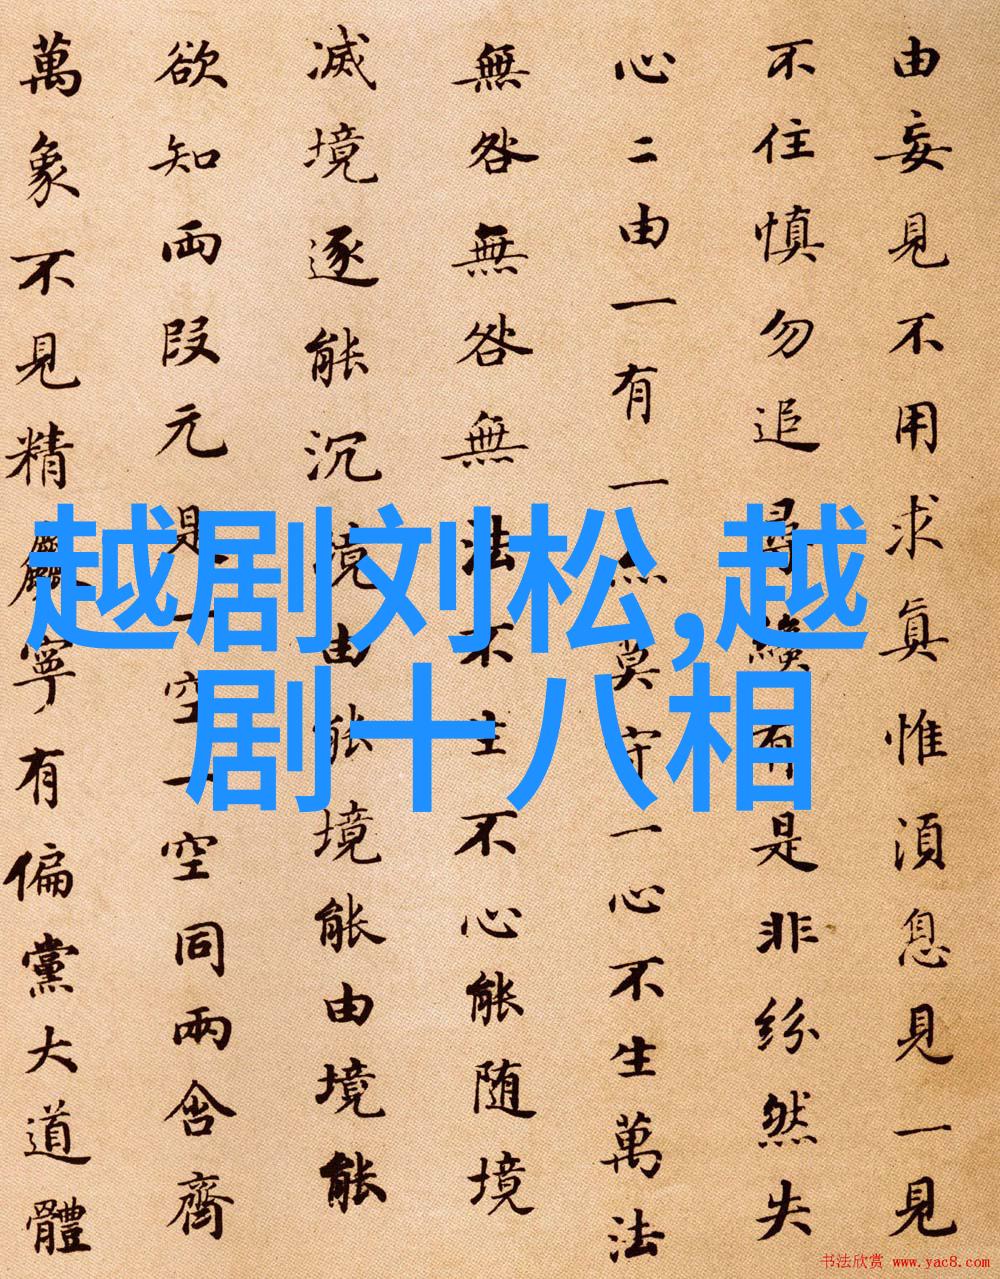 由妄見不用求真惟須息見一見
不住慎勿追尋纔有是非紛然失
心二由一有一亦莫守一心不生萬法
無咎無咎無法不生不心能随境
滅境逐能沉境由能境能由境能
欲知兩段元是一空一空同兩含齊
萬象不見精麤寧有偏黨大道體
越剧刘松,越
剧十八相
书法欣赏 www.yac8.com